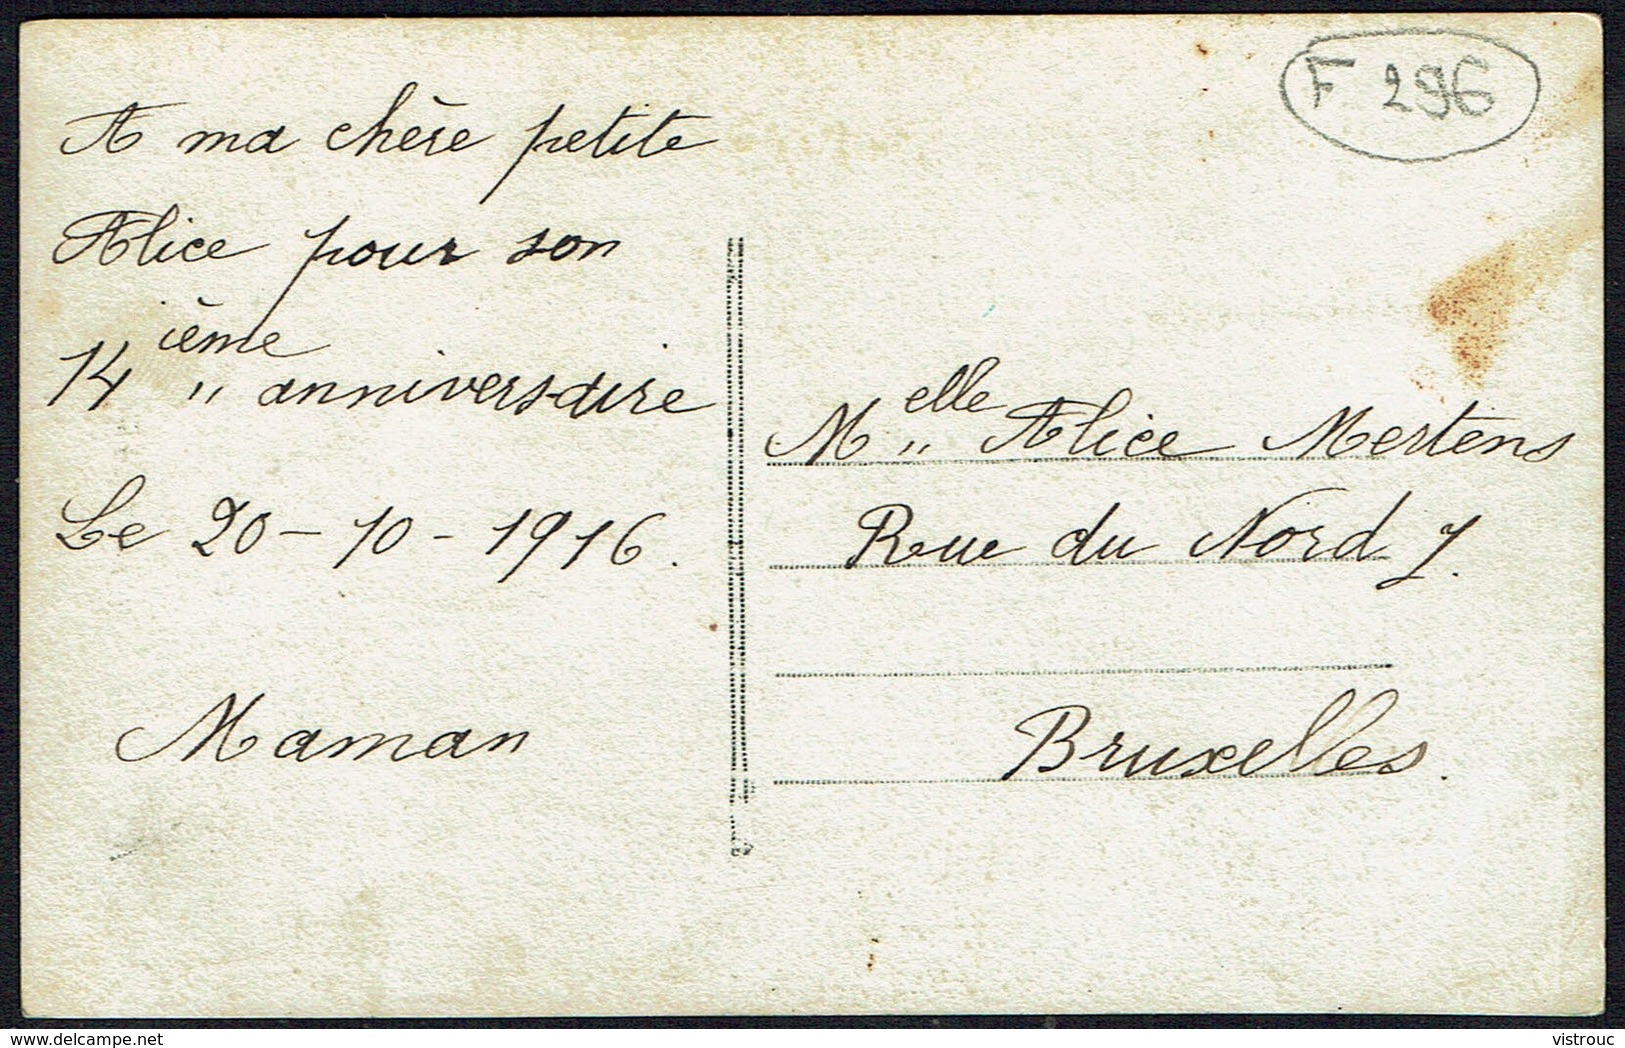 F 296
A ma chère petite
Alice pour son
14 ième „ anniversaire
Le 20 - 10 - 1916.
Maman
Melle „ Alice Mertens
Rue du Nord 7.
Bruxelles.
delcampe.net
vistrouc